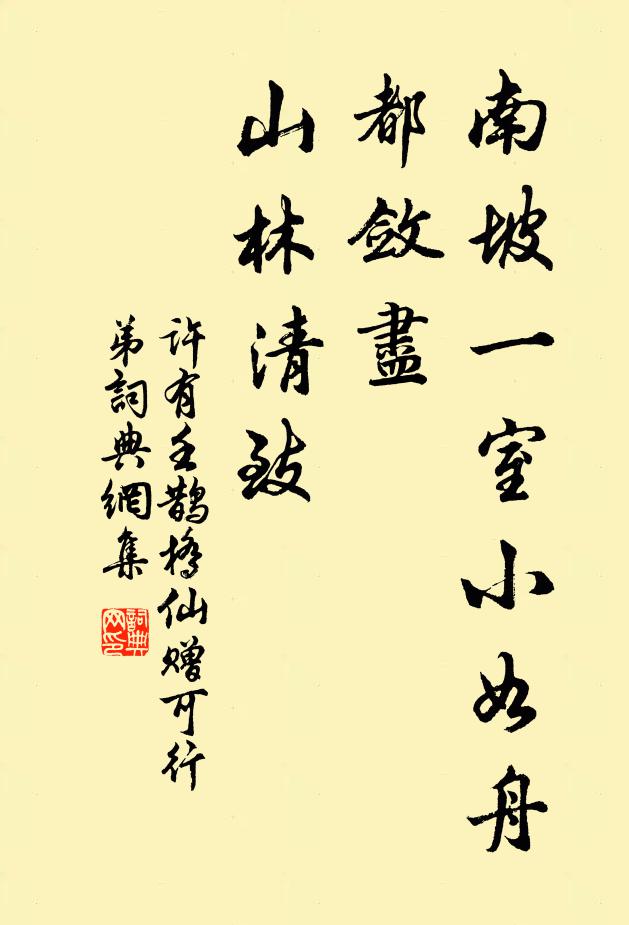 南坡一室小如舟
都斂盡
山林清致
許有壬鵲橋仙贈可行
弟詞典網集
詞典網印